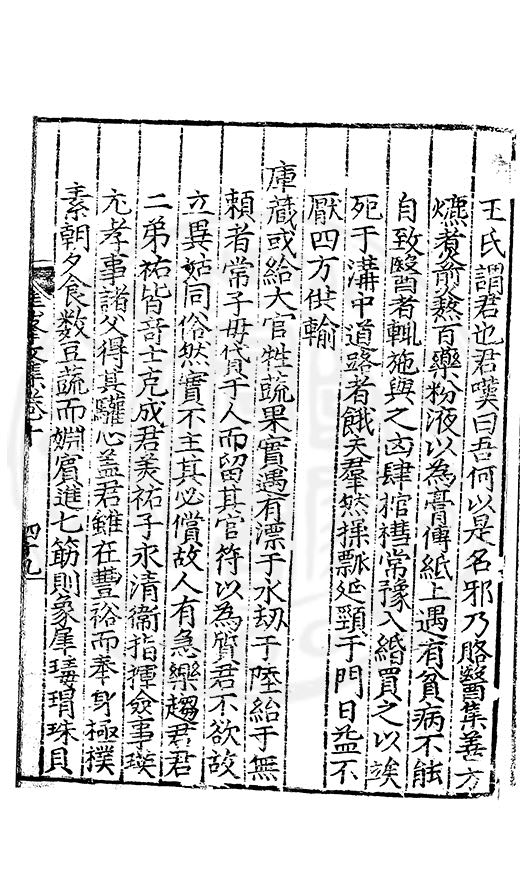 王氏謂君也君嘆曰吾何以是名邪乃賂醫集善方
燋煑煎熬百藥粉液以為膏傅紙上遇有貧病不能
自致醫者輒施與之凶肆棺槥常豫入緡買之以竢
死于溝中道路者餓夫羣然操瓢延頸于門日盈不
厭四方供輸
庫藏或給大官牲蔬果實遇有漂于水刼于陸紿于無
頼者常子母貸于人而留其官符以為質君不欲故
立異姑同俗然實不主其必償故人有急樂趨君君
二弟祐皆竒士克成君美祐子永清衞指揮僉事瑛
尤孝事諸父得其驩心葢君雖在豐裕而奉身極樸
素朝夕食数豆蔬而姻賓進七筯則象犀瑇瑁珠貝
文集卷十
四十九